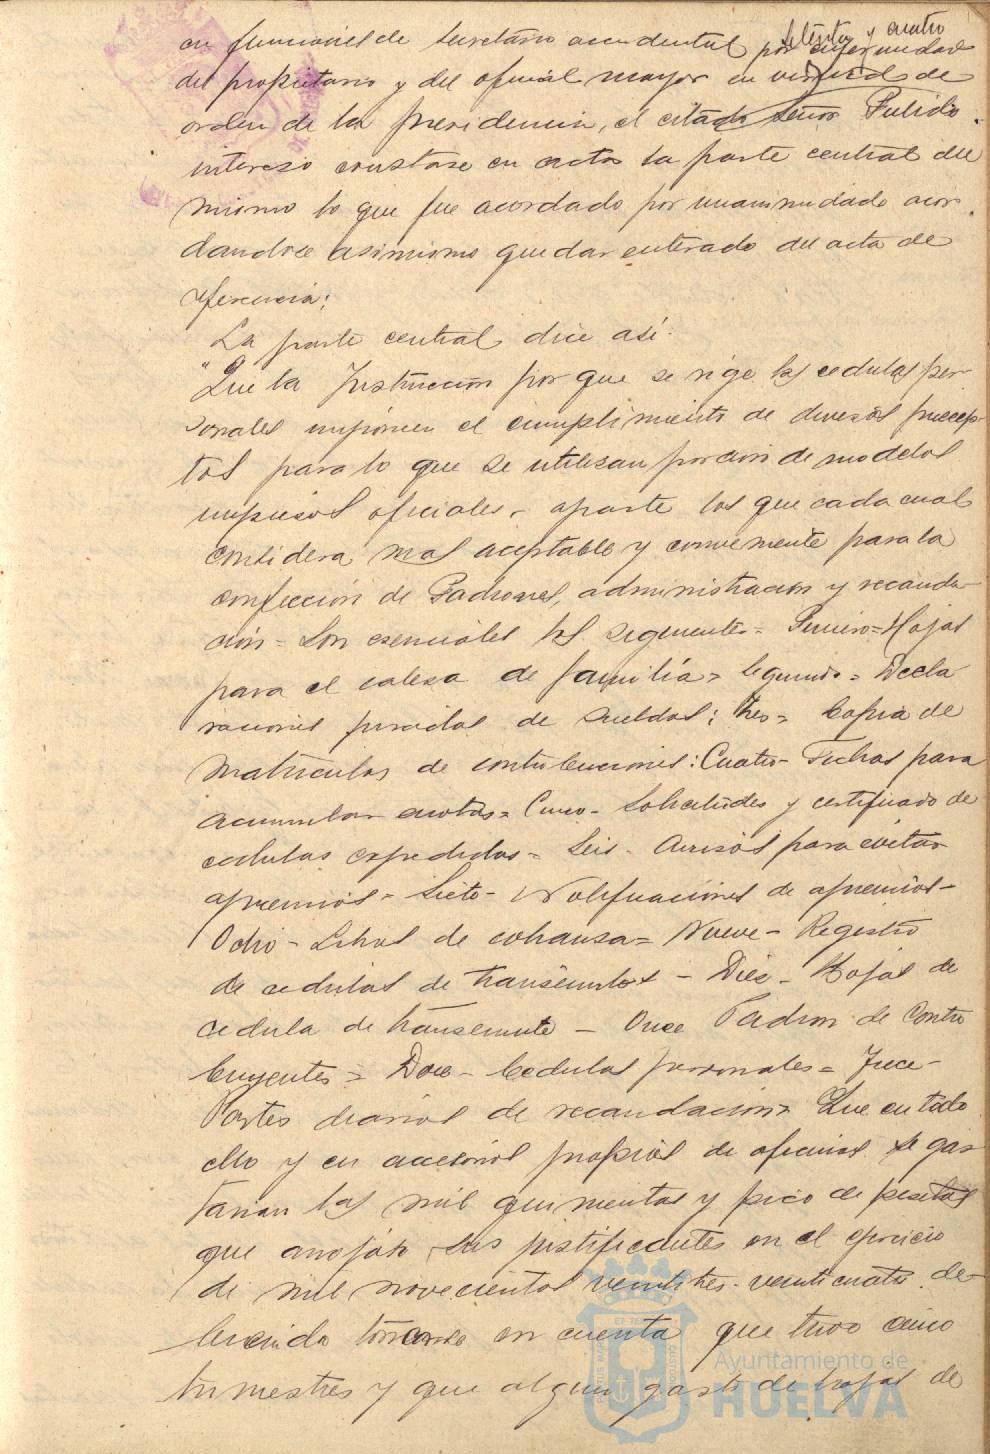 setenta y cuatro
en funciones de Secretario accidental por enfermedad
del propietario y del oficial mayor en virtud de
orden de la presidencia, el citado Señor Pulido
intereso constase en acta la parte central del
mismo lo que fue acordado por unanimidad acor
dandose asimismo quedar enterado del acta de
referencia;
La parte central dice así:
"Que la Instrucción por que se rige las cedulas per
sonales imponen el cumplimiento de diversos precep-
tos para lo que se utilizan porcion de modelos
impresos oficiales, aparte los que cada cual
considera mas aceptable y conveniente para la
confección de Padrones, administracion y recauda-
ción = Son esenciales las siguientes = Primero = Hojas
para el cabeza de familia = Segundo = Decla
raciones juradas de sueldos: Tres = Copia de
matriculas de contribuciones: Cuatro - Fichas para
acumular cuotas = Cinco - Solicitudes y certificado de
cedulas expedidas = Seis - Avisos para evitar
apremios = Siete - Notificaciones de apremios -
Ocho - Libros de cobranza = Nueve - Registro
de cedulas de transeuntes - Diez - Hojas de
cedula de transeunte - Once Padron de Contri
buyentes = Doce - Cedulas personales = Trece -
Partes diarios de recaudacion = Que en todo
ello y en accesorios propios de oficinas se gas
tarian las mil quinientas y pico de pesetas
que arrojan sus justificantes en el ejercicio
de mil novecientos veintitres - veinticuatro de-
biendo tomarse en cuenta que tuvo cinco
trimestres y que algun gasto de hojas de
Ayuntamiento de
HUELVA